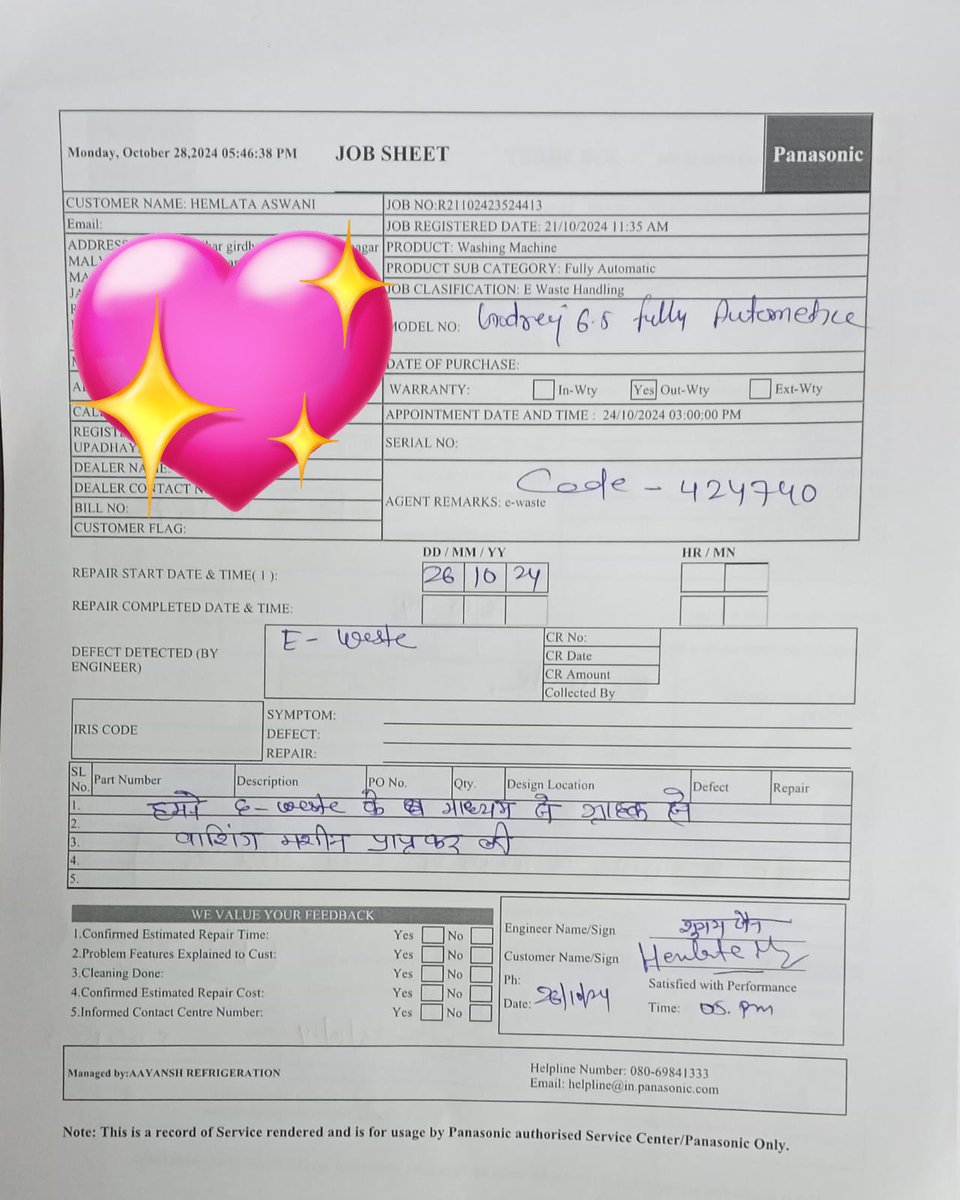 Monday, October 28,2024 05:46:38 PM JOB SHEET Panasonic
CUSTOMER NAME: HEMLATA ASWANI
JOB NO:R21102423524413
Email:
JOB REGISTERED DATE: 21/10/2024 11:35 AM
PRODUCT: Washing Machine
PRODUCT SUB CATEGORY: Fully Automatic
JOB CLASIFICATION: E Waste Handling
MODEL NO: Godrej 6.5 fully Autometice
DATE OF PURCHASE:
WARRANTY: In-Wty Yes Out-Wty Ext-Wty
APPOINTMENT DATE AND TIME : 24/10/2024 03:00:00 PM
SERIAL NO:
DEALER NAME:
Code - 424740
AGENT REMARKS: e-waste
BILL NO:
CUSTOMER FLAG:
DD / MM / YY HR / MN
REPAIR START DATE & TIME( I ): 26 10 24
REPAIR COMPLETED DATE & TIME:
DEFECT DETECTED (BY
ENGINEER)
E- weste
CR No:
CR Date
CR Amount
Collected By
IRIS CODE
SYMPTOM:
DEFECT:
REPAIR:
SL
No. Part Number Description PO No. Qty. Design Location Defect Repair
1. हमने E-weste के माध्यम से ग्राहक से
2.
3. वाशिंग मशीन प्राप्त कर ली
4.
5.
WE VALUE YOUR FEEDBACK
1.Confirmed Estimated Repair Time: Yes No
2.Problem Features Explained to Cust: Yes No
3.Cleaning Done: Yes No
4.Confirmed Estimated Repair Cost: Yes No
5.Informed Contact Centre Number: Yes No
Engineer Name/Sign
Customer Name/Sign
Ph: Satisfied with Performance
Date: 26/10/24 Time: 05. pm
Managed by:AAYANSH REFRIGERATION
Helpline Number: 080-69841333
Email: helpline@in.panasonic.com
Note: This is a record of Service rendered and is for usage by Panasonic authorised Service Center/Panasonic Only.